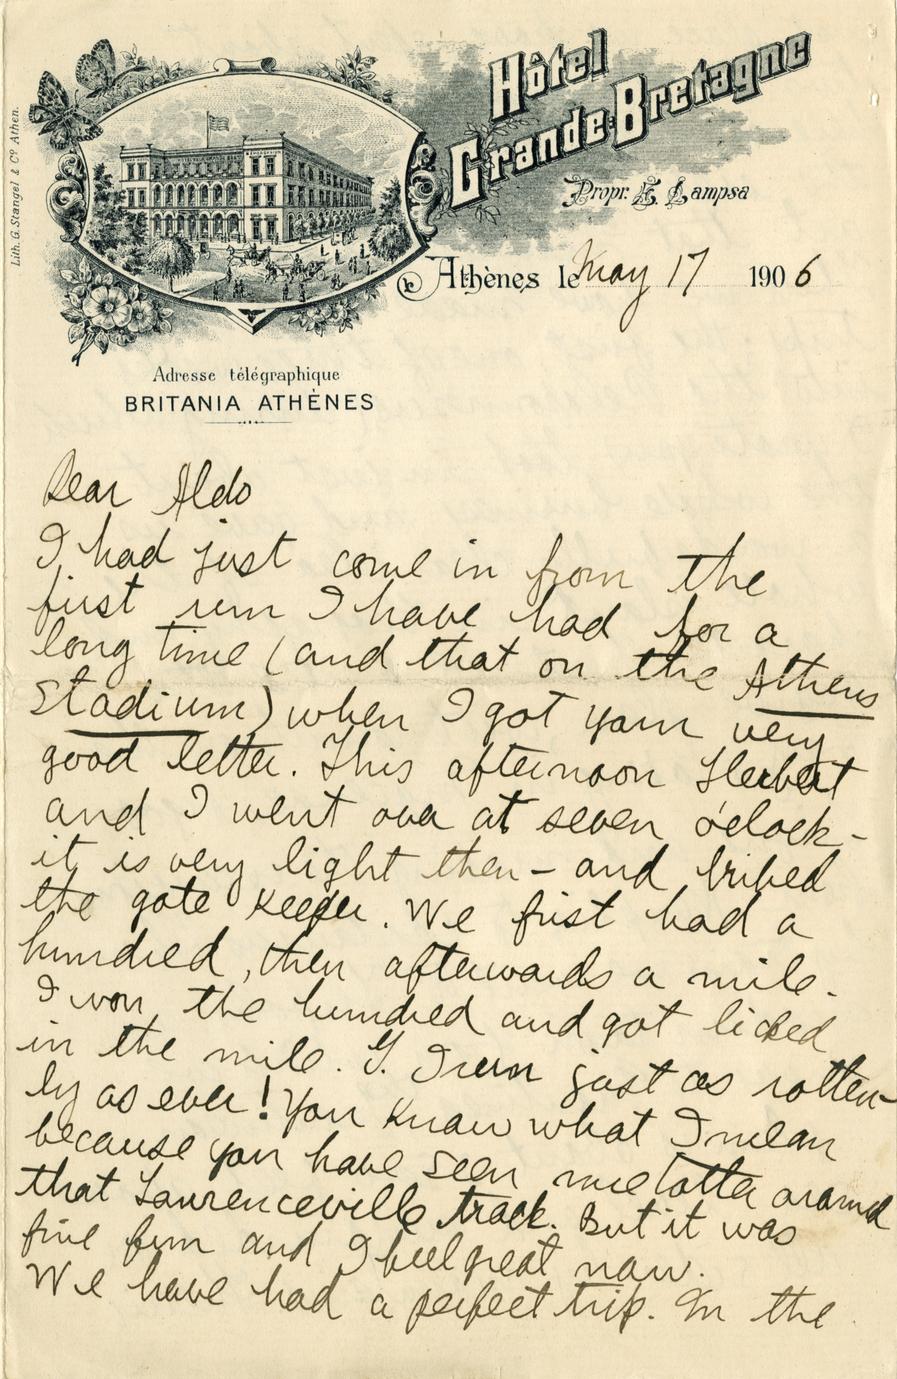 Hôtel
Grande-Bretagne
Propr. E. Lampsa
Lith. G. Stangel & Cº Athen.
Athènes le May 17 1906
Adresse télégraphique
BRITANIA ATHÈNES
Dear Aldo
I had just come in from the
first run I have had for a
long time (and that on the Athens
Stadium) when I got your very
good letter. This afternoon Herbert
and I went over at seven o'clock -
it is very light then - and bribed
the gate keeper. We first had a
hundred, then afterwards a mile.
I won the hundred and got licked
in the mile. I run just as rotten-
ly as ever! You know what I mean
because you have seen me totter around
that Lawrenceville track. But it was
fine fun and I feel great now.
We have had a perfect trip. In the